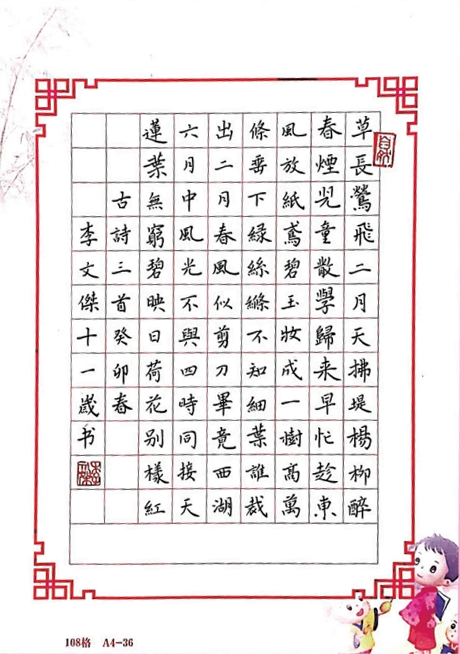 草長鶯飛二月天拂堤楊柳醉
春煙兒童散學歸来早忙趁東
風放紙鳶碧玉妝成一樹高萬
條垂下綠絲縧不知細葉誰裁
出二月春風似剪刀畢竟西湖
六月中風光不與四時同接天
蓮葉無窮碧映日荷花别樣紅
古詩三首癸卯春
李文傑十一歲书
108格 A4-36